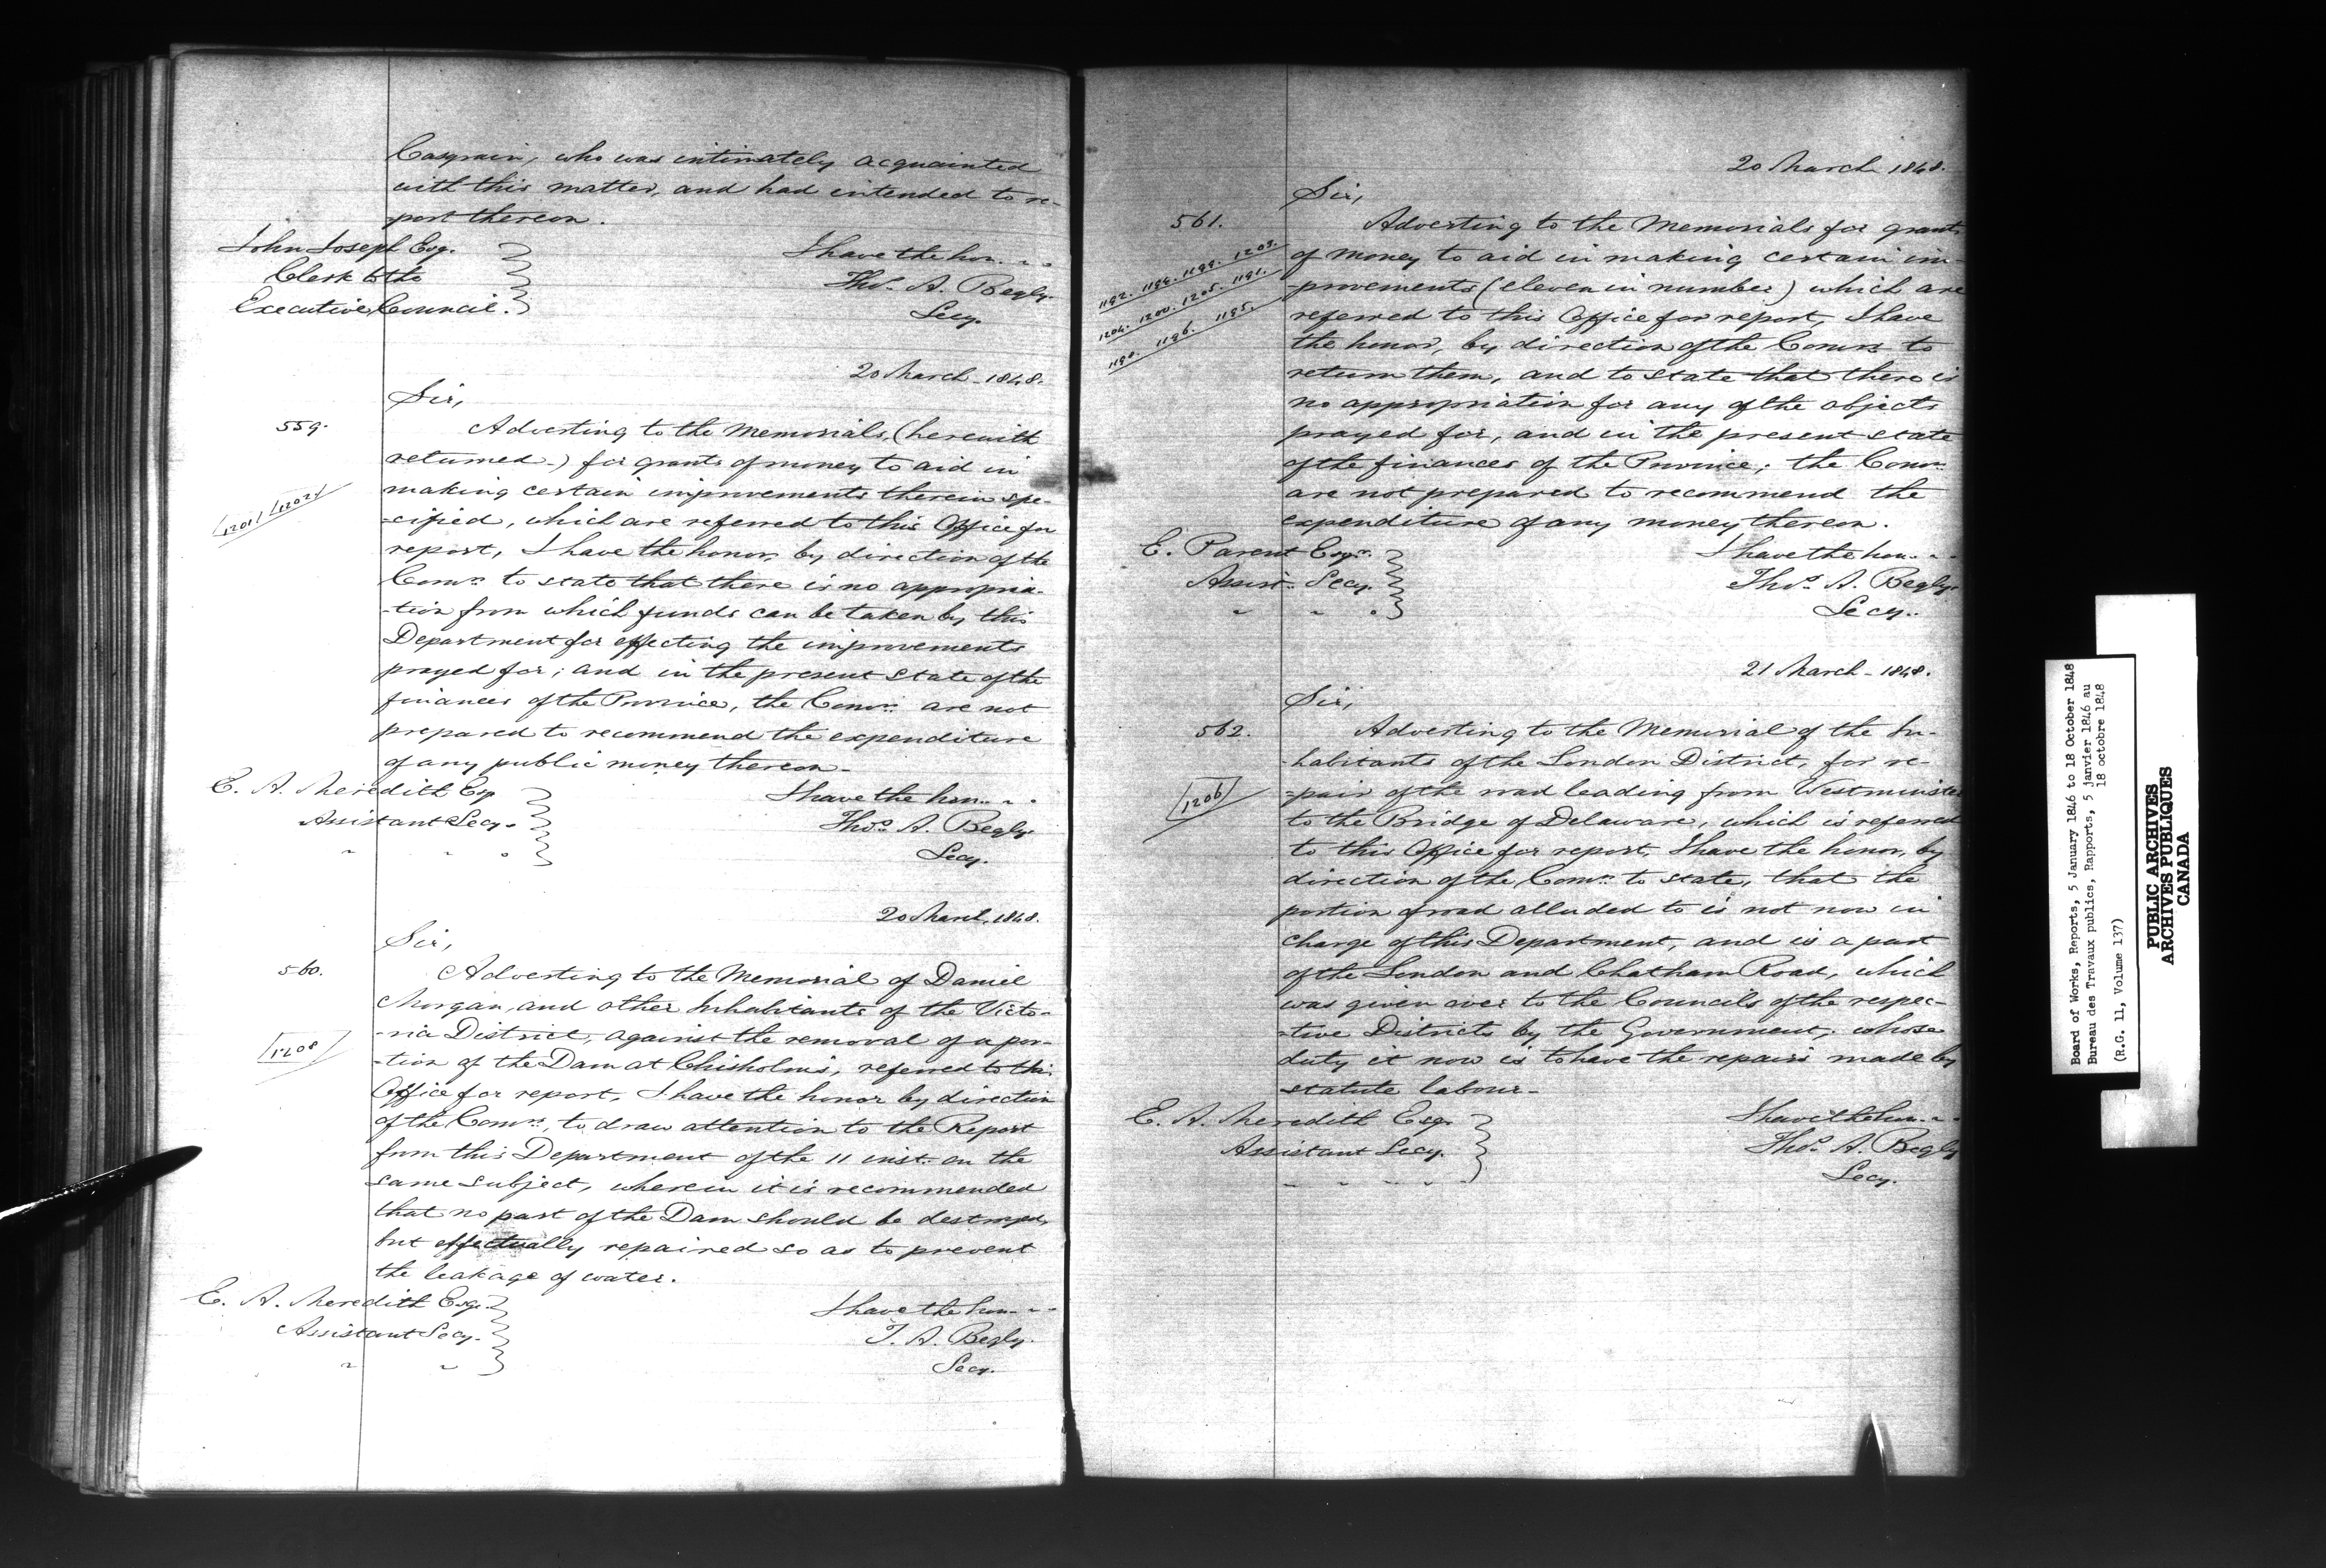 Casgrain, who was intimately acquainted
with this matter, and had intended to re-
-port thereon.
John Joseph Esq.
Clerk to the
Executive Council.
I have the hon. - -
Thos. A. Begly.
Secy.
20 March - 1848.
Sir,
559.
Adverting to the Memorials, (herewith
returned -) for grants of money to aid in
making certain improvements therein spe-
1201 1202
-cified, which are referred to this Office for
report, I have the honor, by direction of the
Comrs. to state that there is no appropria-
-tion from which funds can be taken by this
Department for effecting the improvements
prayed for; and in the present state of the
finances of the Province, the Comrs. are not
prepared to recommend the expenditure
of any public money thereon -
E. A. Meredith Esq
Assistant Secy.
I have the hon. - -
Thos. A. Begly.
Secy.
20 March, 1848.
Sir,
560.
Adverting to the Memorial of Daniel
Morgan, and other Inhabitants of the Victo-
-ria District, against the removal of a por-
1208
-tion of the Dam at Chisholm's, referred to this
Office for report, I have the honor by direction
of the Comrs., to draw attention to the Report
from this Department of the 11 inst. on the
same subject, wherein it is recommended
that no part of the Dam should be destroyed,
but effectually repaired so as to prevent
the leakage of water.
E. A. Meredith Esqr.
Assistant Secy.
I have the hon. - -
T. A. Begly.
Secy.
20 March 1848.
Sir,
561.
Adverting to the Memorials for grants
1192. 1194. 1199. 1203.
of money to aid in making certain im-
1204. 1200. 1205. 1191.
-provements (eleven in number) which are
1190. 1196. 1195.
referred to this Office for report, I have
the honor, by direction of the Comrs. to
return them, and to state that there is
no appropriation for any of the objects
prayed for, and in the present state
of the finances of the Province; the Comrs.
are not prepared to recommend the
expenditure of any money thereon.
E. Parent Esqr.
Assist. Secy.
I have the hon. - -
Thos. A. Begly.
Secy.
21 March - 1848.
Sir,
562.
Adverting to the Memorial of the In-
-habitants of the London District, for re-
1206
-pair of the road leading from Westminster
to the Bridge of Delaware, which is referred
to this Office for report, I have the honor, by
direction of the Comrs. to state, that the
portion of road alluded to is not now in
charge of this Department, and is a part
of the London and Chatham Road, which
was given over to the Councils of the respec-
-tive Districts by the Government, whose
duty it now is to have the repairs made by
statute labour -
E. A. Meredith Esqr.
Assistant Secy.
I have the hon. - -
Thos. A. Begly
Secy.
Board of Works, Reports, 5 January 1846 to 18 October 1848
Bureau des Travaux publics, Rapports, 5 janvier 1846 au
18 octobre 1848
(R.G. 11, Volume 137)
PUBLIC ARCHIVES
ARCHIVES PUBLIQUES
CANADA